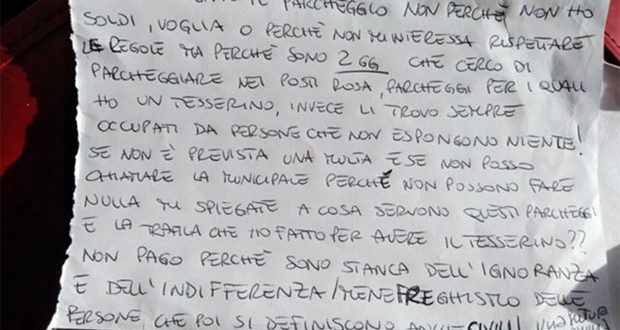 IL PARCHEGGIO NON PERCHÈ NON HO
SOLDI, VOGLIA O PERCHÈ NON MI INTERESSA RISPETTARE
LE REGOLE MA PERCHÈ SONO 2 GG CHE CERCO DI
PARCHEGGIARE NEI POSTI ROSA, PARCHEGGI PER I QUALI
HO UN TESSERINO, INVECE LI TROVO SEMPRE
OCCUPATI DA PERSONE CHE NON ESPONGONO NIENTE!
SE NON È PREVISTA UNA MULTA E SE NON POSSO
CHIAMARE LA MUNICIPALE PERCHÈ NON POSSONO FARE
NULLA MI SPIEGATE A COSA SERVONO QUESTI PARCHEGGI
E LA TRAFILA CHE HO FATTO PER AVERE IL TESSERINO??
NON PAGO PERCHÈ SONO STANCA DELL'IGNORANZA
E DELL'INDIFFERENZA/MENEFREGHISMO DELLE
PERSONE, CHE POI SI DEFINISCONO ANCHE CIVILI!
UNA FUTURA